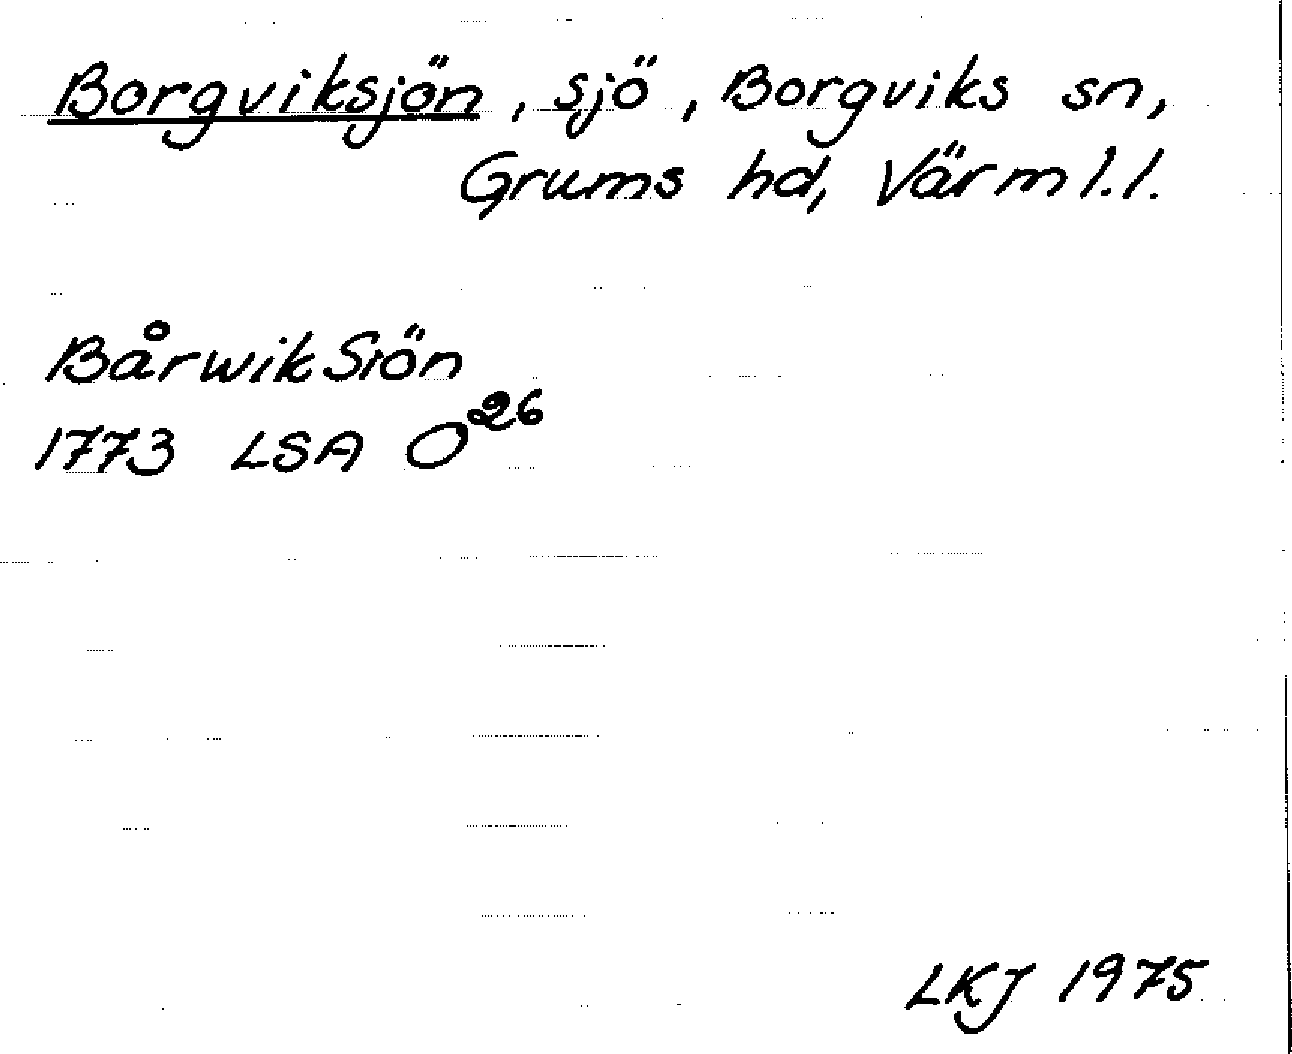 Borgviksjön, sjö, Borgviks sn,
Grums hd, Värml. l.
BårwikSiön
1773 LSA O²⁶
LKJ 1975